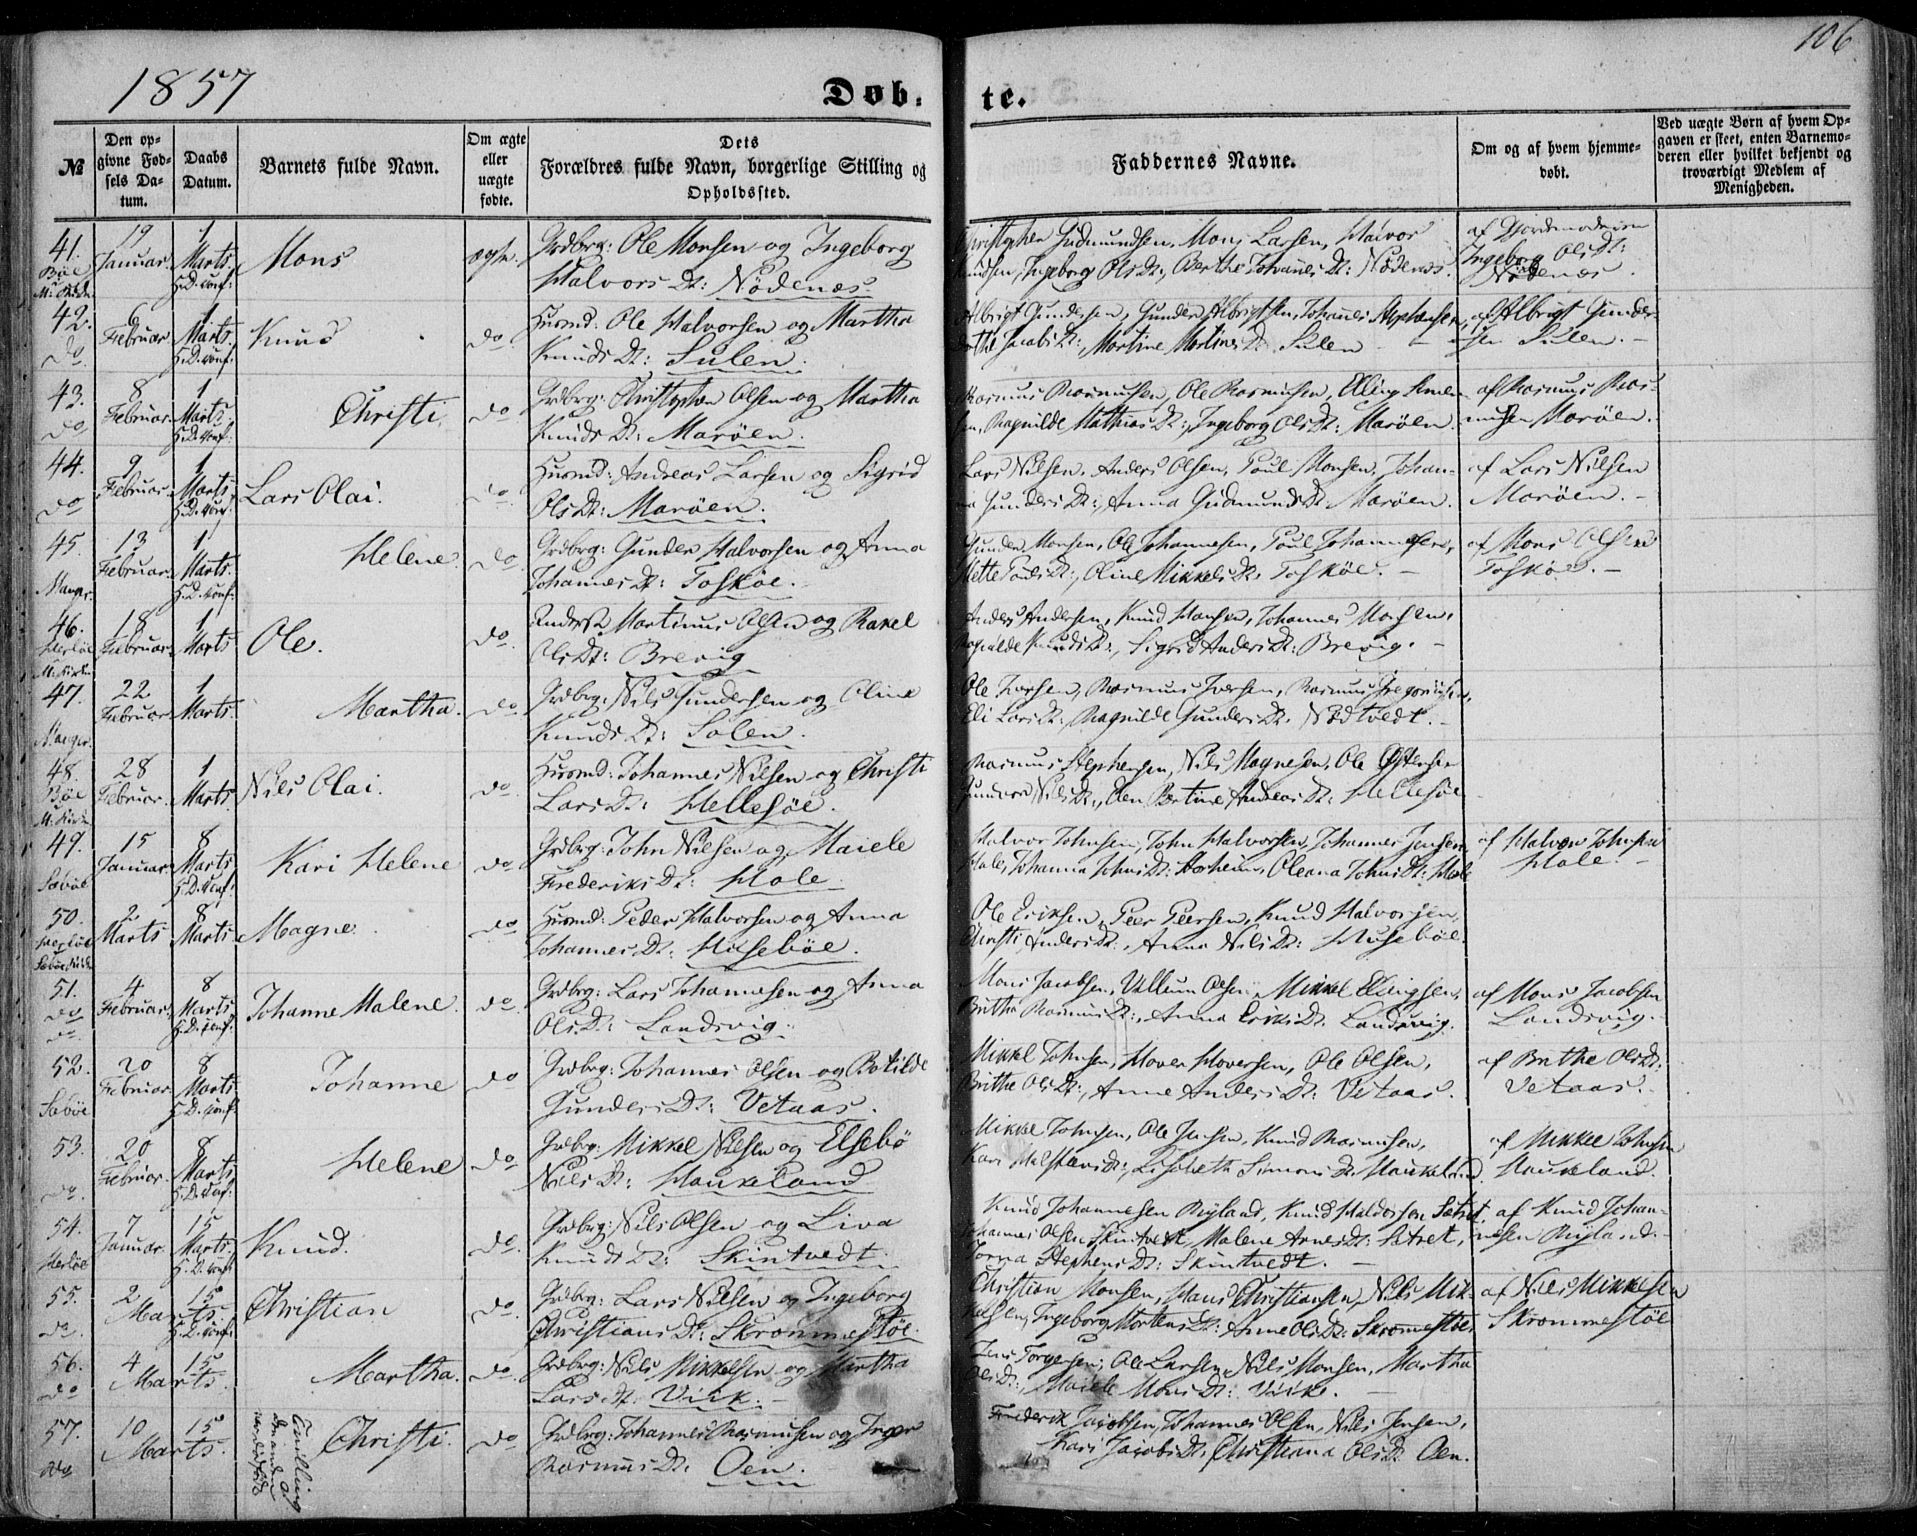 1857
Døb-
te.
106
№
Den opgivne Fødsels Datum.
Daabs Datum.
Barnets fulde Navn.
Om ægte eller uægte fødte.
Dets
Forældres fulde Navn, borgerlige Stilling og
Opholdssted.
Faddernes Navne.
Om og af hvem hjemmedøbt.
Ved uægte Børn af hvem Opgaven er skeet, enten Barnemoderen eller hvilket bekjendt og troværdigt Medlem af Menigheden.
41. 19 Januar 1 Marts H.D. conf: Mons ægte. Grdbrg: Ole Monsen og Ingeborg
Halvors Dt: Nødenæs
Gudmundsen, Mons Larsen, Halvor
Knudsen, Ingeborg Ols Dt:, Berthe Johanes Dt: Nødenæs.
af Jordemoderen
Ingeborg Ols Dt:
Nødenæs.
42. do 6 Februar 1 Marts H.D. conf: Knud do Husmd: Ole Halvorsen og Martha
Knuds Dt: Sulen.
Albrigt Gundersen, Gunder Albrigtsen, Johannes Stephensen,
Jacobs Dt:, Martine Mortines Dt: Sulen
af Albrigt Gundersen Sulen.
43. do 8 Februar 1 Marts H.D. conf: Christi. do Grdbrg: Christopher Olsen og Martha
Knuds Dt: Marøen.
Rasmus Rasmusen, Ole Rasmusen, Elling
Ragnilde Mathias Dt:, Ingeborg Ols Dt: Marøen.
af Rasmus Rasmusen Marøen.
44. do 9 Februar 1 Marts H.D. conf: Lars Olai. do Husmd: Andreas Larsen og Sigrid
Ols Dt: Marøen.
Lars Nilsen, Anders Olsen, Poul Monsen, Johanna Gunders Dt:, Anna Gudmunds Dt: Marøen.
af Lars Nilsen
Marøen.
45. Manger. 13 Februar 1 Marts H.D. conf: Helene. do Grdbrg: Gunder Halvorsen og Anna
Johannes Dt: Toskøe.
Gunder Monsen, Ole Johannesen, Poul Johannesen,
Mette Pouls Dt:, Oline Mikkels Dt: Toskøe.
af Mons Olsen
Toskøe.
46. Herløe 18 Februar 1 Marts Ole. do Martinus Olsen og Rakel
Ols Dt: Brevig
Anders Andersen, Knud Hansen, Johannes Monsen,
Ragnilde Knuds Dt:, Sigrid Anders Dt: Brevig.
47. Manger. 22 Februar 1 Marts. Martha. do Grdbrg: Nils Gundersen og Oline
Knuds Dt: Solen.
Ole Iversen, Rasmus Iversen, Rasmus Gregoriusen,
Eli Lars Dt: Ragnilde Gunders Dt. Nødtvedt.
48. Bøe 28 Februar. 1 Marts. Nils Olai. do Husmd: Johannes Nilsen og Christi
Lars Dt: Hellesøe.
Rasmus Stephensen, Nils Magnesen, Ole
Nils Dt:, Bertine Andreas Dt: Hellesøe
49. Sæbøe 15 Januar. 8 Marts H.D. conf: Kari Helene do Grdbrg: John Nilsen og Maiele
Frederiks Dt: Hole.
Halvor Johnsen, John Halvorsen, Johannes Jensen
Hole, Johanna Johns Dt: Oleana Johns Dt: Hole
af Halvor Johnsen
Hole.
50. Herløe 2 Marts 8 Marts Magne. do Husmd: Peder Halvorsen og Anna
Johannes Dt: Husebøe.
Ole Eriksen, Peer Peersen, Knud Halvorsen,
Christi Anders Dt:, Anna Nils Dt: Husebøe.
51. do 4 Februar. 8 Marts H.D. conf: Johanne Malene. do Grdbrg: Lars Johannesen og Anna
Ols Dt: Landsvig.
Mons Jacobsen, Villum Olsen, Mikkel Ellingsen,
Britha Rasmus Dt:, Anna Eriks Dt. Landsvig.
af Mons Jacobsen
Landsvig.
52. Sæbøe 20 Februar 8 Marts H.D. conf: Johanne do Grdbrg: Johannes Olsen og Botilde
Gunders Dt: Vetaas.
Mikkel Johnsen, Hover Hoversen, Ole Olsen,
Brithe Ols Dt:, Anne Anders Dt: Vetaas.
af Brithe Ols Dt:
Vetaas.
53. do 20 Februar. 8 Marts H.D. conf: Helene do Grdbrg: Mikkel Nilsen og Elsebø
Nils Dt: Haukeland
Mikkel Johnsen, Ole Jensen, Knud Rasmusen,
Kari Dt:, Lisabeth Simons Dt. Haukeland
af Mikkel Johnsen
Haukeland.
54. Herløe 7 Januar. 15 Marts. H.D. conf: Knud. do Grdbrg: Nils Olsen og Liva
Knuds Dt: Skintvedt.
Knud Johannesen Ryland, Knud Haldorsen Sætret,
Johannes Olsen Skintvedt, Malene Arnes Dt: Sætret,
Stephens Dt: Skintvedt.
af Knud Johannesen Ryland.
55. do 2 Marts 15 Marts H.D. conf: Christian do Grdbrg: Lars Nilsen og Ingeborg
Christians Dt: Skrommestøe.
Christian Monsen, Hans Christiansen, Nils Mikkelsen, Ingeborg Mortens Dt: Anne Ols Dt: Skromestøe,
af Nils Mikkelsen
Skrommestøe
56. do 4 Marts 15 Marts. Martha. do Grdbrg: Nils Mikkelsen og Martha
Lars Dt: Viik.
Jens Torgersen, Ole Larsen, Nils Monsen, Martha
Ols Dt:, Maiele Mons Dt: Viik.
57. do 10 Marts 15 Marts. Christi. do Grdbrg: Johannes Rasmusen og Inger
Rasmus Dt: Oen.
Tvilling
den anden
var dødfødt
Frederik Jacobsen, Johannes Olsen, Nils Jensen,
Kari Jacobs Dt, Christiana Ols Dt. Oen.